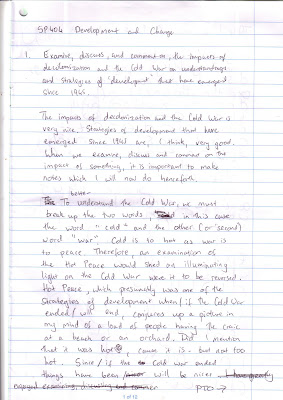 SP404 Development and Change
1. Examine, discuss, and comment on, the impacts of
decolonization and the Cold War on understandings
and strategies of 'development' that have emerged
since 1945.
The impacts of decolonization and the Cold War is
very nice. Strategies of development that have
emerged since 1941 are, I think, very good.
When we examine, discuss and comment on the
impact of something, it is important to make
notes which I will now do henceforth.
better
To understand the Cold War, we must
break up the two words, in this case
the word "cold" and the other (or 'second)
word "war". Cold is to hot as war is
to peace. Therefore, an examination of
the Hot Peace would shed an illuminating
light on the Cold War were it to be reversed.
Hot Peace, which presumably was one of the
strategies of development when/if the Cold War
ended/will end, conjures up a picture in
my mind of a load of people having the picnic
at a beach or an orchard. Did I mention
that it was hot, cause it is - but not too
hot. Since/if the Cold War ended
things have been/ will be nicer
PTO →
1 of 12